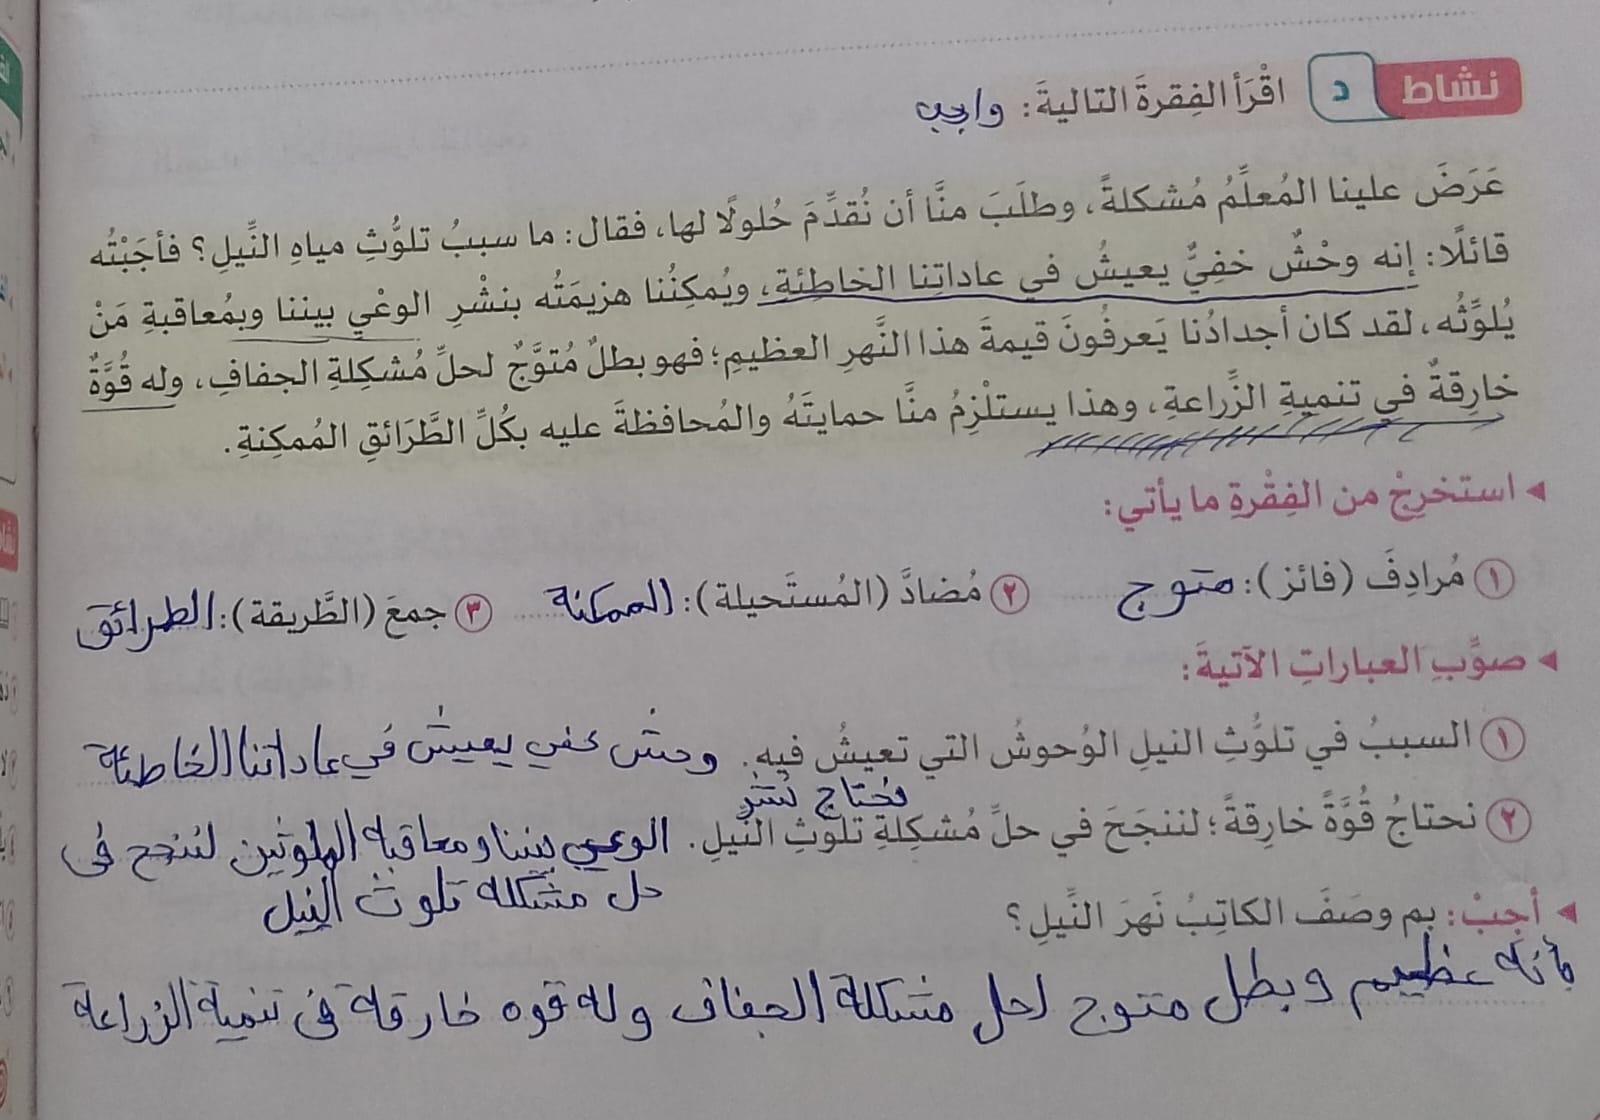 نشاط د اقْرَأ الفِقرةَ التاليةَ: واجب
عَرَضَ علينا المُعلِّمُ مُشكلةً، وطلَبَ منَّا أن نُقدِّمَ حُلولًا لها، فقال: ما سببُ تلوُّثِ مياهِ النِّيلِ؟ فأجَبْتُه
قائلًا: إنه وحْشٌ خفِيٌّ يعيشُ في عاداتِنا الخاطِئةِ، ويُمكِنُنا هزيمَتُه بنشْرِ الوعْيِ بيننا وبمُعاقبةِ مَنْ
يُلوِّثُه، لقد كان أجدادُنا يَعرفُونَ قيمةَ هذا النَّهرِ العظيمِ؛ فهو بطلٌ مُتوَّجٌ لحلِّ مُشكِلةِ الجفافِ، وله قُوَّةٌ
خارِقةٌ في تنميةِ الزِّراعةِ، وهذا يستلْزِمُ منَّا حمايتَهُ والمُحافظةَ عليه بكُلِّ الطَّرَائقِ المُمكِنةِ.
◂ استخرِجْ من الفِقْرةِ ما يأتي:
١ مُرادِفَ (فائز): متوج ٢ مُضادَّ (المُستَحيلة): الممكنة ٣ جمعَ (الطَّريقة): الطرائق
◂ صوِّبِ العباراتِ الآتيةَ:
١ السببُ في تلوُّثِ النيلِ الوُحوشُ التي تعيشُ فيهِ. وحش خفي يعيش في عاداتنا الخاطئة
نحتاج نشر
٢ نحتاجُ قُوَّةً خارِقةً؛ لننجَحَ في حلِّ مُشكِلةِ تلوُّثِ النِّيلِ. الوعي بيننا ومعاقبة الملوثين لننجح في
حل مشكلة تلوث النيل
◂ أجِبْ: بم وصَفَ الكاتِبُ نَهرَ النِّيلِ؟
بأنه عظيم وبطل متوج لحل مشكلة الجفاف وله قوه خارقة في تنمية الزراعة